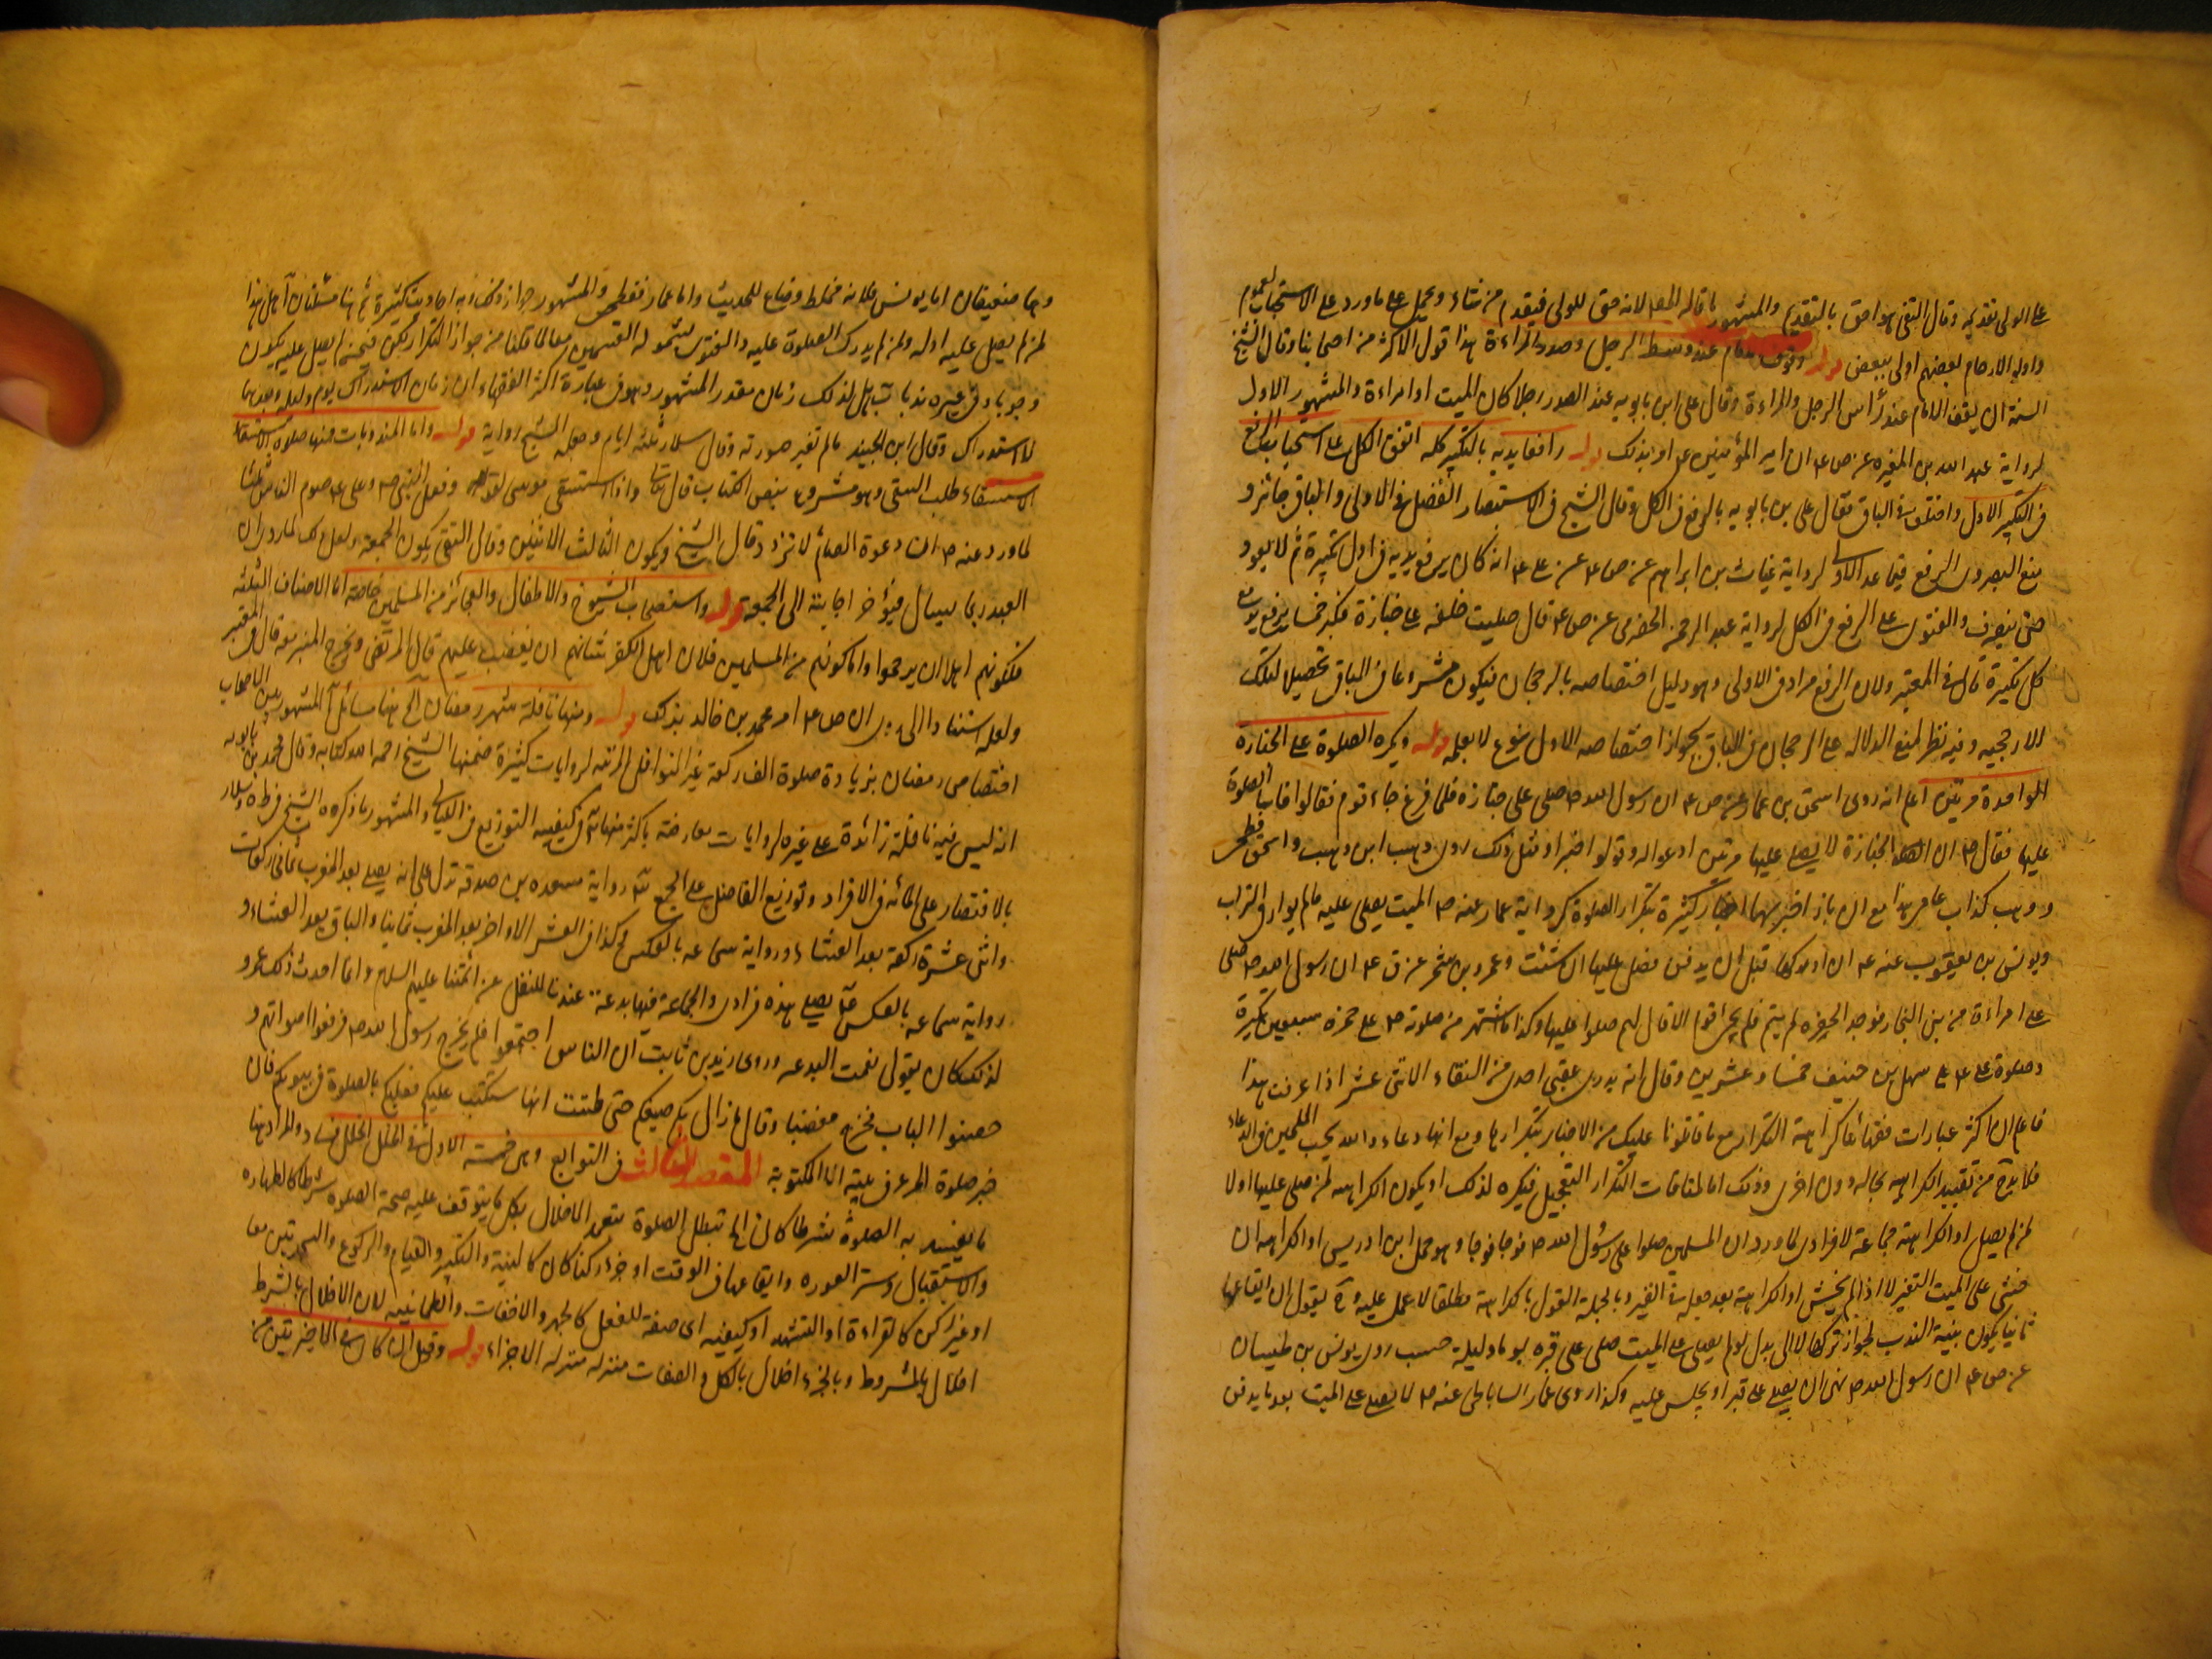 على الولى تقديمه وقال التقى هو احق بالتقديم والمشهور ما قاله المصـ لانه حق للولى فيقدم من شاء ويحمل على ماورد على الاستحباب لعموم
واولو الارحام بعضهم اولى ببعض قوله وقوف الامام عند وسط الرجل وصدر المراءة هذا قول الاكثر من اصحابنا وقال الشيخ
السنة ان يقف الامام عند رأس الرجل والمراءة وقال على ابن بابويه عند الصدر رجلا كان الميت او امراءة والمشهور الاول
لرواية عبد الله بن المغيره عن ص ع ان امير المؤمنين ع امر بذلك قوله رافعا يديه بالتكبير كله اتفق الكل على استحباب الرفع
فى التكبير الاول واختلف فى الباقى فقال على بن بابويه بالرفع فى الكل وقال الشيخ فى الاستبصار افضل فى الاولى والباقى جائز و
منع البصروى الرفع فيما عدا الاولى لرواية غياث بن ابراهيم عن ص ع عن على ع انه كان يرفع يديه فى اول تكبيرة ثم لا يعود
حتى ينصرف والفتوى على الرفع فى الكل لرواية عبد الرحمن الحضرمى عن ص ع قال صليت خلفه على جنازة فكبر خمسا يرفع يديه مع
كل تكبيرة قال فى المعتبر ولان الرفع مراد فى الاولى وهو دليل اختصاصه بالرجحان فيكون مشروعا فى الباقى تحصيلا لتلك
الارجحيه وفيه نظر لمنع الدلاله على الرجحان فى الباقى لجواز اختصاصه الاول بنوع لا نعلمه قوله ويكره الصلوة على الجنازة
الواحدة مرتين اعلم انه روى اسحق بن عمار عن ص ع ان رسول الله ص صلى على جنازه فلما فرغ جاء قوم فقالوا فاتتنا الصلوة
عليها فقال ص ان الجنازة لا يصلى عليها مرتين ادعوا له وقولوا خيرا ومثل ذلك روى وهب ابن وهب واسحق فطحى
ووهب كذاب عامى هذا مع ان بازا خبريهما اخبار كثيرة بتكرار الصلوة كرواية عمار عنه ص الميت يصلى عليه مالم يوار فى التراب
ويونس بن يعقوب عنه ع ان ادركها قبل ان يدفن فصل عليها ان شئت وعمرو بن شمر عن ق ع ان رسول الله ص صلى
على امراءة من بنى النجار فوجد الحفره لم يتم فلم يجئ قوم الا قال لهم صلوا عليها وكذا ما اشتهر من صلوته ص على حمزه سبعين تكبيرة
وصلوة على ع على سهل بن حنيف خمسا وعشرين وقال انه بدرى عقبى احدى من النقباء الاثنى عشر اذا عرفت هذا
فاعلم ان اكثر عبارات فقهائنا كراهة التكرار مع ما قد تلونا عليك من الاخبار بتكرارها ومع انها دعاء والله يحب الملحين فى الدعاء
فلا بد ح من تقييد الكراهيه بحاله دون اخرى وذلك اما لمنافات التكرار التعجيل فيكره لذلك او يكون الكراهيه لمن صلى عليها اولا
لمن لم يصل او الكراهة جماعة لا فرادى لماورد ان المسلمين صلوا على رسول الله ص فوجا فوجا وهو محمل ابن ادريس او الكراهه ان
خشى على الميت التغير لا اذا لم يخش او الكراهة بعد جعله فى القبر وبالجملة القول بالكراهة مطلقا لا عمل عليه و ح يقول ان ايقاعها
ثانيا يكون بنية الندب لجواز تركها لا الى بدل لو لم يصلى على الميت صلى على قبره يوما وليلة حسب روى يونس بن ظبيان
عن ص ع ان رسول الله ص نهى ان يصلى على قبر او يجلس عليه وكذا روى عمار الساباطى عنه ص لا يصلى على الميت بعد ما يدفن
وهما ضعيفان اما يونس فلانه مخلط وضاع للحديث واما عمار ففطحى والمشهور جواز ذلك وبه احاديث كثيرة ثم هنا مسئلتان آ هل هذا
لمن لم يصل عليه اولمن لم يدرك الصلوة عليه والفتوى بشموله القسمين معا لما قلنا من جواز التكرار لكن فيمن لم يصل عليه يكون
وجوبا وفى غيره ندبا ب هل لذلك زمان مقدر المشهور وهو فى عبارة اكثر الفقهاء ان زمان الاستدراك يوم وليلة وبعدها
لا استدراك وقال ابن الجنيد مالم تغير صورته وقال سلار ثلثه ايام وجعله الشيخ رواية قوله واما المندوبات فمنها صلوة الاستسقاء
الاستسقاء طلب السقى وهو مشروع بنص الكتاب قال تعالى واذ استسقى موسى لقومه وفعل النبى ص وعلى ع صوم الناس ثلثا
لما ورد عنه ص ان دعوة الصائم لا ترد وقال الشيخ ويكون الثالث الاثنين وقال التقى يكون الجمعة ولعل ذلك لما روى ان
العبد ربما يسال فيؤخر اجابته الى الجمعة قوله واستصحاب الشيوخ والاطفال والعجائز من المسلمين خاصة اما الاصناف الثلثه
فلكونهم اهلا ان يرحموا واما كونهم من المسلمين فلان اهل الكفر شانهم ان يغضب عليهم قال المرتضى ويخرج المنبر معه قال فى المعتبر
ولعله استنادا الى ما روى ان ص ع امر محمد بن خالد بذلك قوله ومنها نافلة شهر رمضان الخ هنا مسائل آ المشهور بين الاصحاب
اختصاص رمضان بزيادة صلوة الف ركعة غير النوافل المرتبه لروايات كثيرة ضمنها الشيخ رحمه الله كتابه وقال محمد بن بابويه
انه ليس فيه نافلة زائدة على غيره لروايات معارضه باكثر منها ب فى كيفيه التوزيع فى الليالى والمشهور ما ذكره الشيخ فى ط وسلار
بالاقتصار على المائه فى الافراد وتوزيع الفاضل على الجمع ج رواية مسعده بن صدقه تدل على انه يصلى بعد المغرب ثمانى ركعات
واثنى عشرة ركعة بعد العشاء ورواية سماعه بالعكس وكذا فى العشر الاواخر بعد المغرب ثمانيا والباقى بعد العشاء و
رواية سماعه بالعكس د يصلى هذه فرادى والجماعة فيها بدعة عندنا للنقل عن ائمتنا عليهم السلام وانما احدث ذلك عمر و
لذلك كان يقول نعمت البدعه وروى زيد بن ثابت ان الناس اجتمعوا فلم يخرج رسول الله ص فرفعوا اصواتهم و
حصبوا الباب فخرج مغضبا وقال مازال بكم صنيعكم حتى ظننت انها ستكتب عليكم فعليكم بالصلوة فى بيوتكم فان
خير صلوة المرء فى بيته الا المكتوبة المقصد الثالث فى التوابع وهى خمسة الاول فى الخلل الخلل فساد والمراد هنا
ما يفسد به الصلوة شرطا كان الخ تبطل الصلوة بتعمد الاخلال بكل ما يتوقف عليه صحة الصلوة شرطا كالطهاره
والاستقبال وستر العوره وايقاعها فى الوقت او جزء ركنا كان كالنية والتكبير والقيام والركوع والسجدتين معا
او غير ركن كالقراءة او التشهد او كيفيه اى صفه للفعل كالجهر والاخفات والطمانينه لان الاخلال بالشرط
اخلال بالمشروط وبالجزء اخلال بالكل والصفات منزله منزله الاجزاء قوله وقيل ان كان فى الاخيرتين من